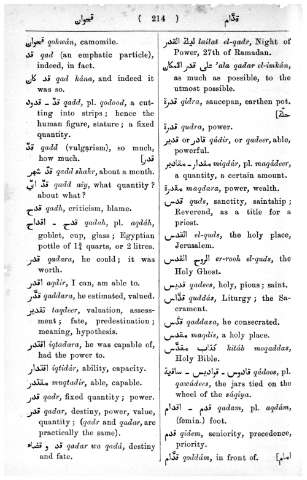 قحوان ( 214 ) قدّام
قحوان qohwân, camomile.
قد qad (an emphatic particle), indeed, in fact.
قد كان qad kâna, and indeed it was so.
قدّ - قدود qadd, pl. qodood, a cutting into strips; hence the human figure, stature; a fixed quantity.
قدّ qadd (vulgarism), so much, how much. [قدر
قدّ شهر qadd shahr, about a month.
قدّ أيّ qadd aiy, what quantity? about what?
قدح qadh, criticism, blame.
قدح - اقداح qadah, pl. aqdâh, goblet, cup, glass; Egyptian pottle of 1¾ quarts, or 2 litres.
قدر qadara, he could; it was worth.
اقدر aqdir, I can, am able to.
قدّر qaddara, he estimated, valued.
تقدير taqdeer, valuation, assessment; fate, predestination; meaning, hypothesis.
اقتدر iqtadara, he was capable of, had the power to.
اقتدار iqtidâr, ability, capacity.
مقتدر muqtadir, able, capable.
قدر qadr, fixed quantity; power.
قدر qadar, destiny, power, value, quantity; (qadr and qadar, are practically the same).
قدر و قضاء qadar wo qadâ, destiny and fate.
ليلة القدر lailat el-qadr, Night of Power, 27th of Ramadan.
على قدر الامكان 'ala qadar el-imkân, as much as possible, to the utmost possible.
قدرة qidra, saucepan, earthen pot. [حلّة
قدرة qudra, power.
قادر or قدير qâdir, or qadeer, able, powerful.
مقدار - مقادير miqdâr, pl. maqâdeer, a quantity, a certain amount.
مقدرة maqdara, power, wealth.
قدس quds, sanctity, saintship; Reverend, as a title for a priest.
القدس el-quds, the holy place, Jerusalem.
الروح القدس er-rooh el-quds, the Holy Ghost.
قديس qadees, holy, pious; saint.
قدّاس quddâs, Liturgy; the Sacrament.
قدّس qaddasa, he consecrated.
مقدس maqdis, a holy place.
كتاب مقدّس kitâb moqaddas, Holy Bible.
قادوس - قواديس - ساقية qâdoos, pl. qawâdees, the jars tied on the wheel of the sâqiya.
قدم - اقدام qadam, pl. aqdâm, (femin.) foot.
قدم qidem, seniority, precedence, priority.
قدّام qoddâm, in front of. [امام